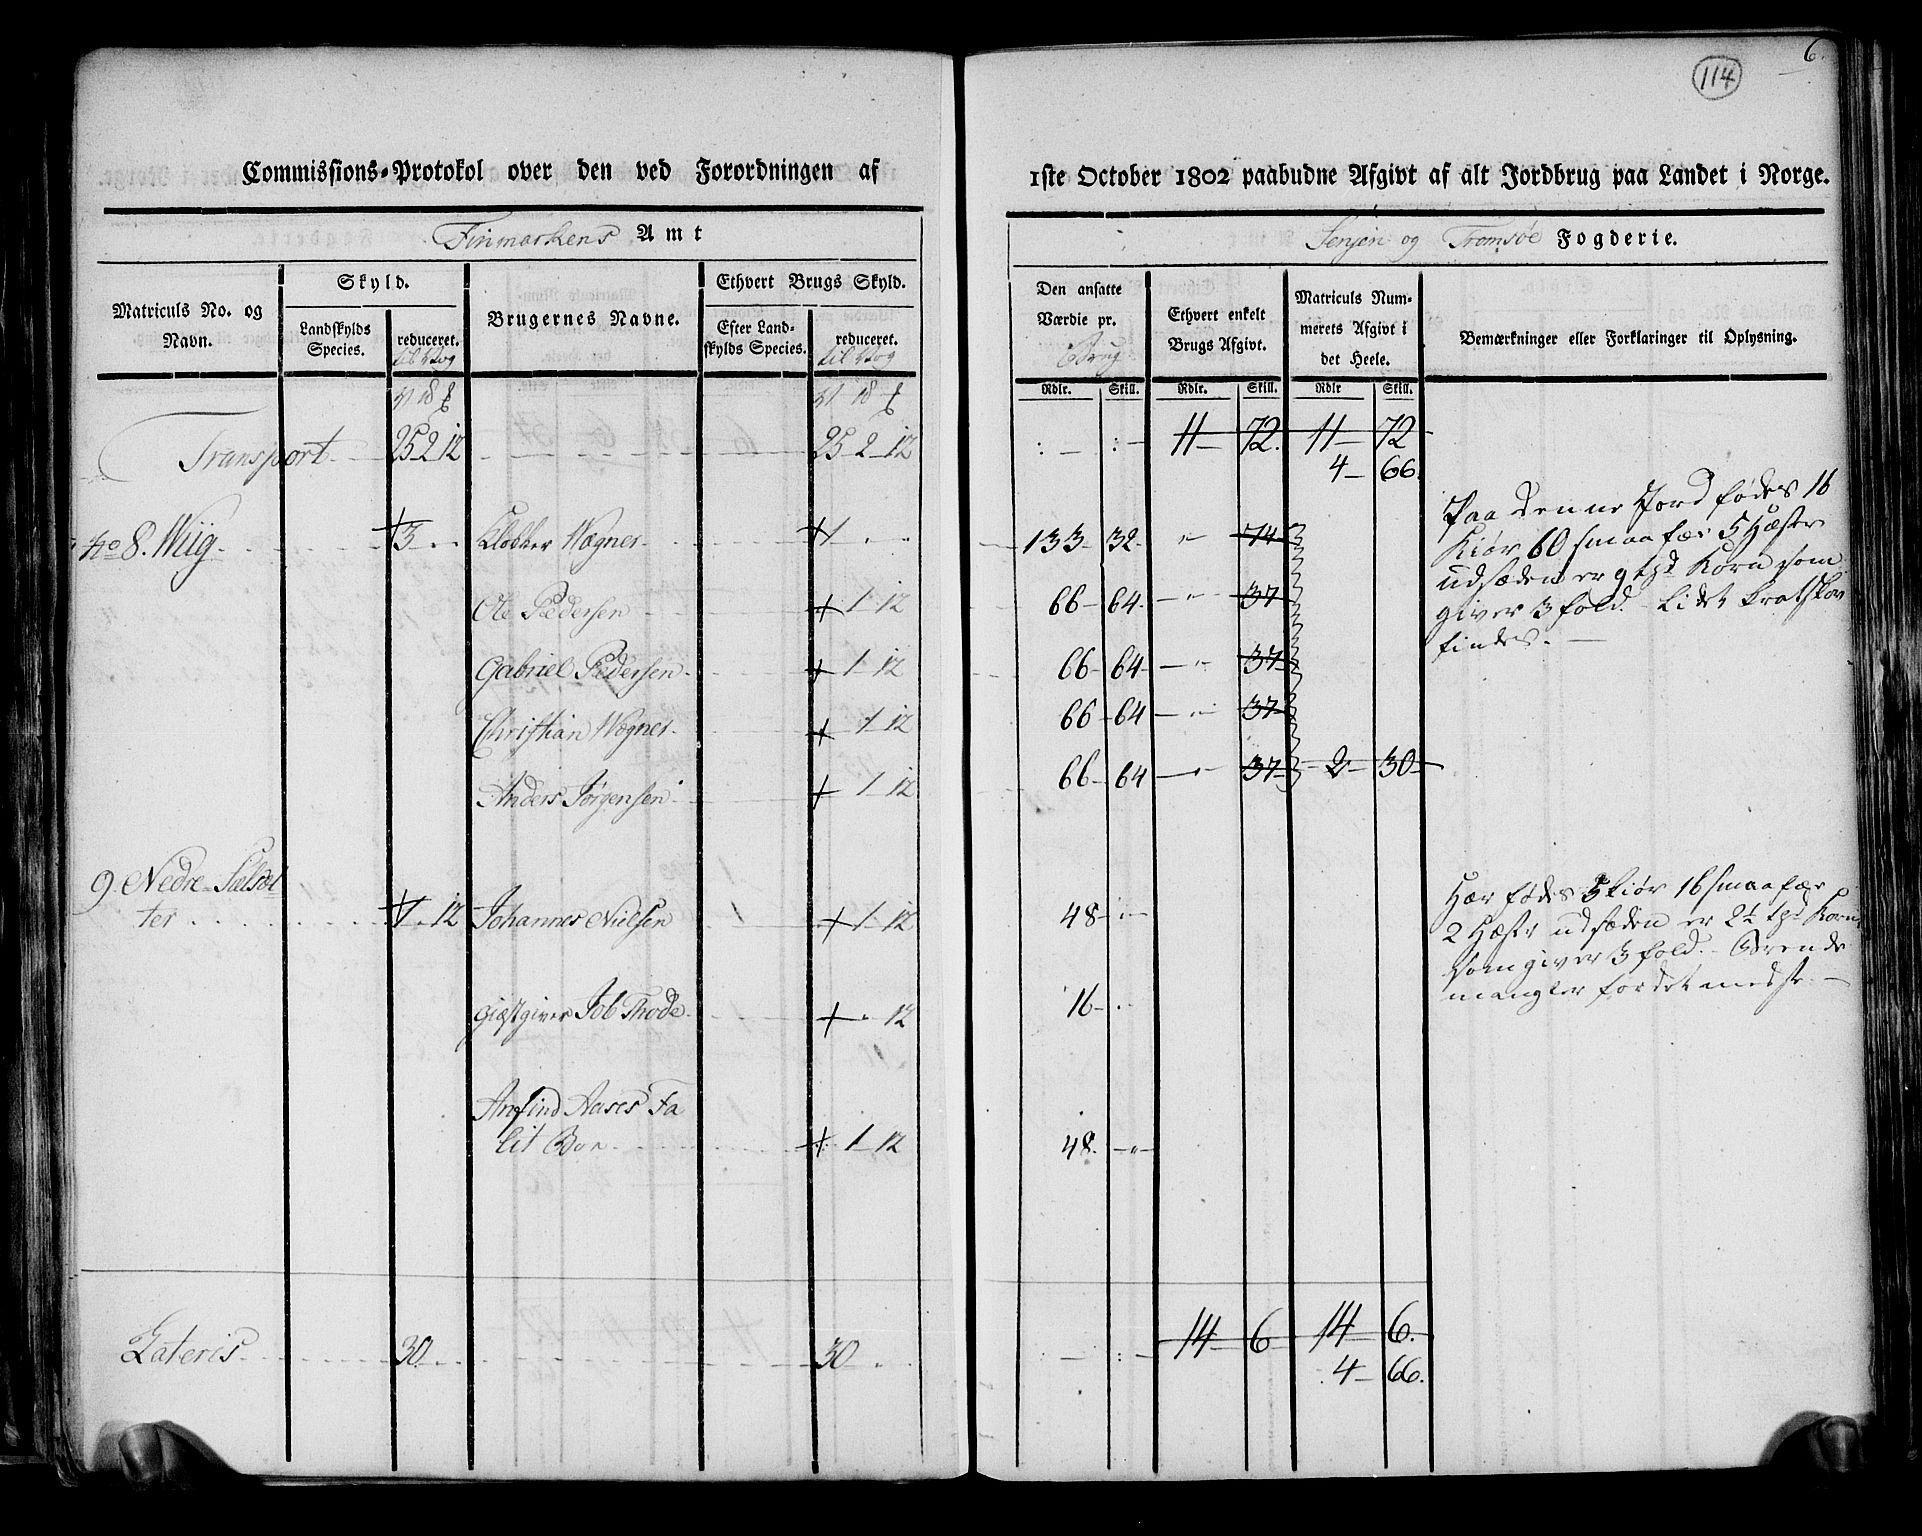 114
6.
Commissions-Protokol over den ved Forordningen af
1ste October 1802 paabudne Afgivt af alt Jordbrug paa Landet i Norge.
Finmarkens Amt
Senjen og Tromsøe Fogderie.
Matriculs No. og Navn.
Skyld.
Landskylds Species.
reduceret.
Brugernes Navne.
Ethvert Brugs Skyld.
Efter Land-
skylds Species.
reduceret.
Den ansatte
Værdie pr.
Brug
Ethvert enkelt
Brugs Afgivt.
Matriculs Num-
merets Afgivt i
det Heele.
Bemærkninger eller Forklaringer til Oplysning.
Rdlr. Skill. Rdlr. Skill. Rdlr Skill.
Transport 25 2 12 25 2 12 : : 11 72. 11 72
4 66.
No 8. Wiig 3 Klokker Wægner 1 133 32 " 74
Ole Pedersen 1 12 66 64 " 37
Gabriel Pedersen 1 12 66 64 " 37
Christian Wægner 1 12 66 64 " 37
Anders Jørgensen 1 12 66 64 " 37 2 30
Paa denne Jord fødes 16
Kiør 60 smaafæ 5 Hæster
udsæden er 9 tpd Korn som
giver 3 fold. Lidet Kratskov
findes.
9. Nedre Sælsæt
ter 1 12 Johannes Nielsen 1 12 48 "
Giæstgiver Job Thode 12 16 "
Anfind Aases Fa
lit Boe 1 12 48. "
Hær fødes 5 Kiør 16 smaafæ
2 Hæste udsæden er 2½ tpd Korn
som giver 3 fold. Brænde
mangler for det meste.
Lateris 30 30 : 14 6 14 6.
4 66.